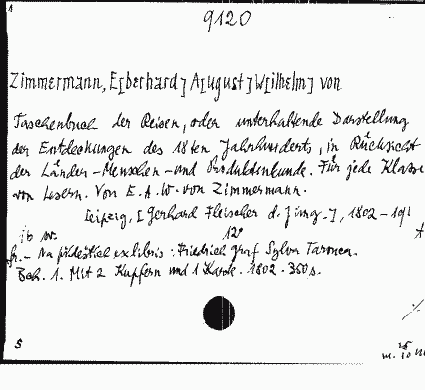 1
9120
Zimmermann, E[berhard] A[ugust] W[ilhelm] von
Taschenbuch der Reisen, oder unterhaltende Darstellung
der Entdeckungen des 18ten Jahrhunderts, in Rücksicht
der Länder-Menschen-und Produktenkunde. Für jede Klasse
von Lesern. Von E. A. W. von Zimmermann.
Leipzig, [Gerhard Fleischer d. Jüng.], 1802-19
16 sv. 12°
fr. - Na přídeštích exlibris: Friedrich Graf Sylva Tarouca.
Bch. 1. Mit 2 Kupfern und 1 Karte. 1802. 350 s.
5